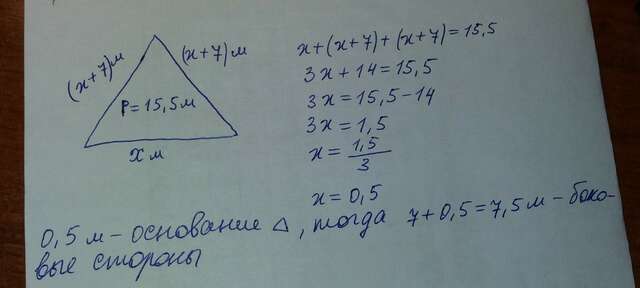 (x+7)м
(x+7)м
P=15,5м
x м
x+(x+7)+(x+7)=15,5
3x+14=15,5
3x=15,5-14
3x=1,5
x=1,5/3
x=0,5
0,5 м - основание △, тогда 7+0,5=7,5м - боко-
вые стороны